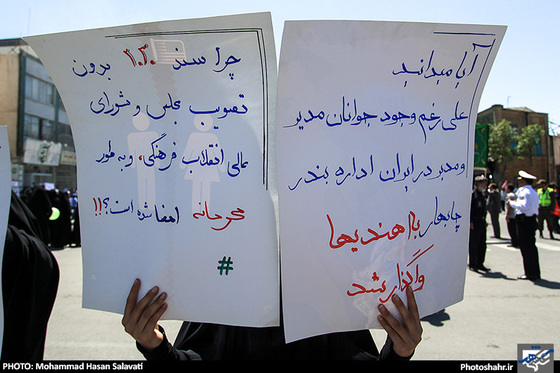 آیا میدانید
علی رغم وجود جوانان مدیر
و مدبر در ایران اداره بندر
چابهار با هندیها
واگذار شد
چرا سند ۲۰۳۰ بدون
تصویب مجلس و شورای
عالی انقلاب فرهنگی، و به طور
محرمانه امضا شده است؟!!
#
PHOTO: Mohammad Hasan Salavati
Photoshahr.ir